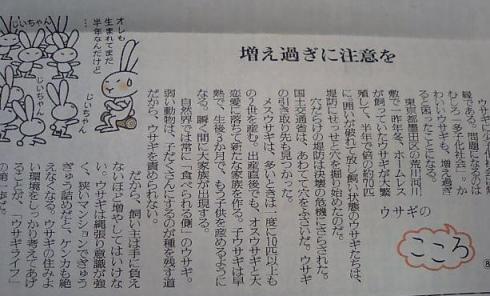 増え過ぎに注意を
ウサギの
こころ
⑧
ウサギに
である。問題になるのは
むしろ「多子化社会」。か
わいいウサギも、増え過ぎ
ると困ったことになる。
東京都墨田区の荒川河川
敷で一昨年冬、ホームレス
が飼っていたウサギが大繁
殖して、半年で倍の約70匹
に。囲いが破れて放し飼い状態のウサギたちは、
堤防にせっせと穴を掘り始めたのだ。
穴だらけの堤防は決壊の危機にさらされた。
国土交通省は、あわてて穴をふさいだ。ウサギ
の引き取り先も見つかった。
メスウサギは、多いときは一度に10匹以上も
の2世を産む。出産直後でも、オスウサギと大
恋愛に落ちて新たな家族を作る。子ウサギは早
熟で、生後3か月で、もう子供を産めるように
なる。瞬く間に大家族が出現する。
自然界では常に「食べられる側」のウサギ。
弱い動物は、子だくさんにするのが種を残す道
だから、ウサギを責められない。
だから、飼い主は手に負え
ないほど増やしてはいけな
い。ウサギは縄張り意識が強
く、狭いマンションでぎゅう
ぎゅう詰めだと、ケンカも絶
えなくなる。ウサギの住みよ
い環境をしっかり考えてあげ
ることが、「ウサギライフ」
の第一歩だ。
オレも
生まれてまだ
半年なんだけど
じいちゃん
じいちゃん
じいちゃん